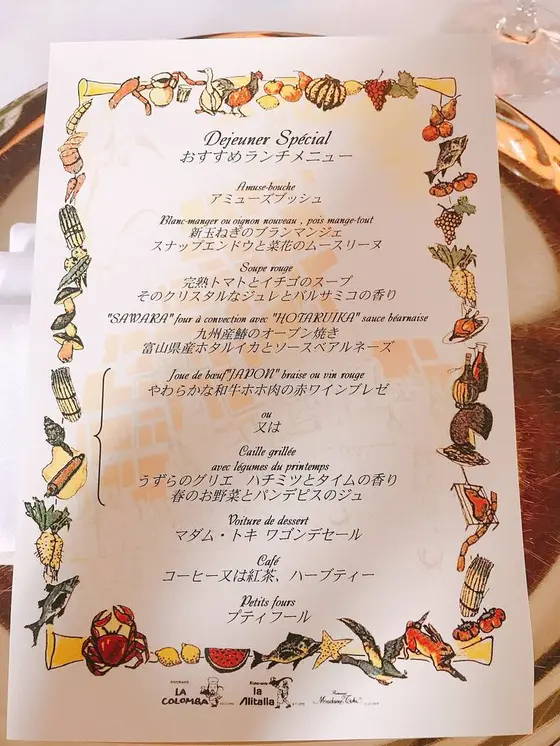 Dejeuner Spécial
おすすめランチメニュー
Amuse-bouche
アミューズブッシュ
Blanc-manger ou oignon nouveau , pois mange-tout
新玉ねぎのブランマンジェ
スナップエンドウと菜花のムースリーヌ
Soupe rouge
完熟トマトとイチゴのスープ
そのクリスタルなジュレとバルサミコの香り
"SAWARA" four à convection avec "HOTARUIKA" sauce béarnaise
九州産鰆のオーブン焼き
富山県産ホタルイカとソースベアルネーズ
Joue de bœuf"JAPON" braise ou vin rouge
やわらかな和牛ホホ肉の赤ワインブレゼ
ou
又は
Caille grillée
avec légumes du printemps
うずらのグリエ ハチミツとタイムの香り
春のお野菜とパンデピスのジュ
Voiture de dessert
マダム・トキ ワゴンデセール
Café
コーヒー又は紅茶、ハーブティー
Petits fours
プティフール
LA COLOMBA
Ristorante la Alitalia
Madame Toki